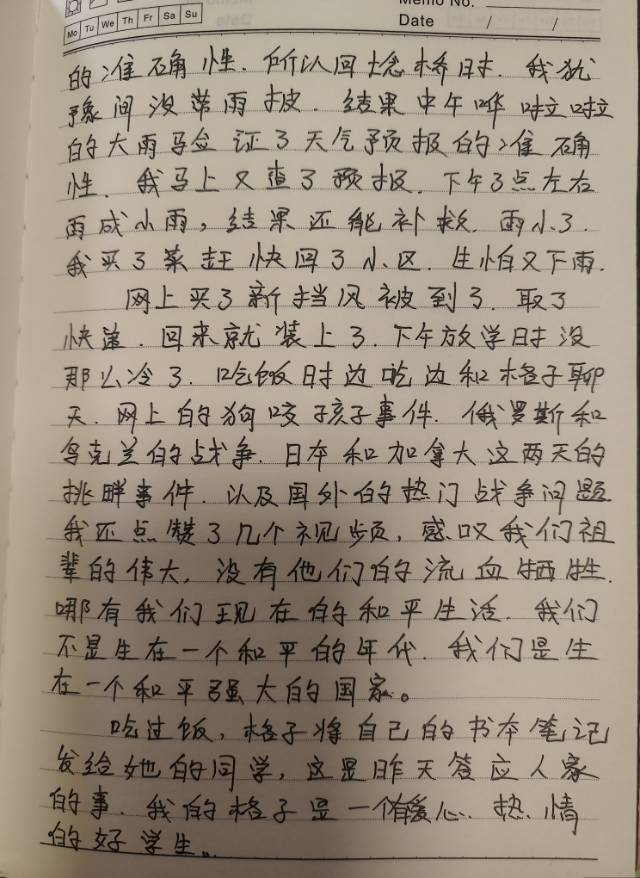 Memo No.
Mo Tu We Th Fr Sa Su
Date / /
的准确性.所以回
我犹
豫间没带雨披.结果中午哗啦啦
的大雨验证了天气预报的准确
性.我马上又查了预报.下午3点左右
雨成小雨,结果还能补救.雨小了.
我买了菜赶快回了小区.生怕又下雨.
网上买了新挡风被到了.取了
快递.回来就装上了.下午放学时没
那么冷了.吃饭时边吃边和格子聊
天.网上的狗咬孩子事件.俄罗斯和
乌克兰的战争.日本和加拿大这两天的
挑衅事件.以及国外的热门战争问题
我还点赞了几个视频,感叹我们祖
辈的伟大,没有他们的流血牺牲.
哪有我们现在的和平生活.我们
不是生在一个和平的年代.我们是生
在一个和平强大的国家。
吃过饭,格子将自己的书本笔记
发给她的同学,这是昨天答应人家
的事.我的格子是一个有爱心.热情
的好学生。